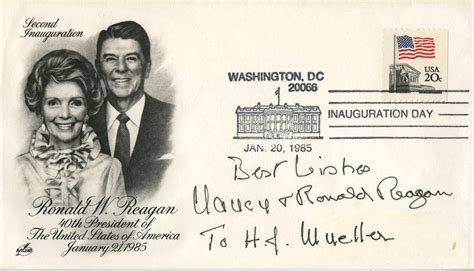 Second
Inauguration
Ronald W. Reagan
40th President of
The United States of America
January 21, 1985
Artcraft
WASHINGTON, DC
20066
INAUGURATION DAY
JAN. 20, 1985
USA
20c
Best Wishes
Nancy & Ronald Reagan
To H.J. Mueller